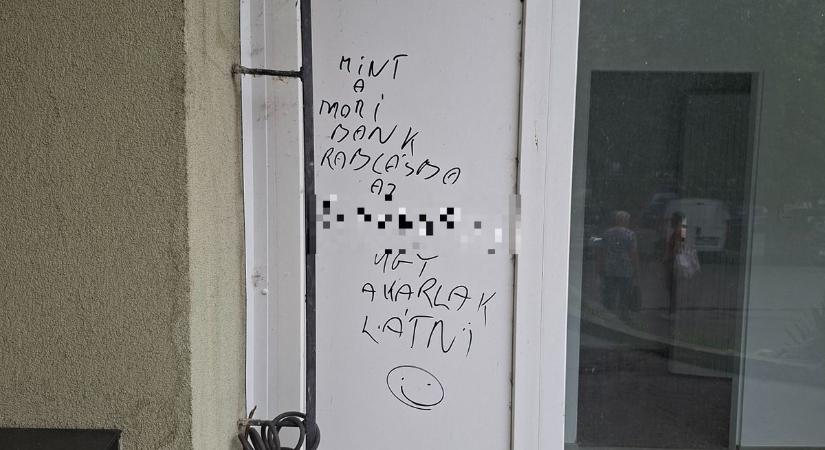 MiNT
A
MORi
BANK
RABLÁSBA
AZ
ÚGY
AKARLAK
LÁTNi